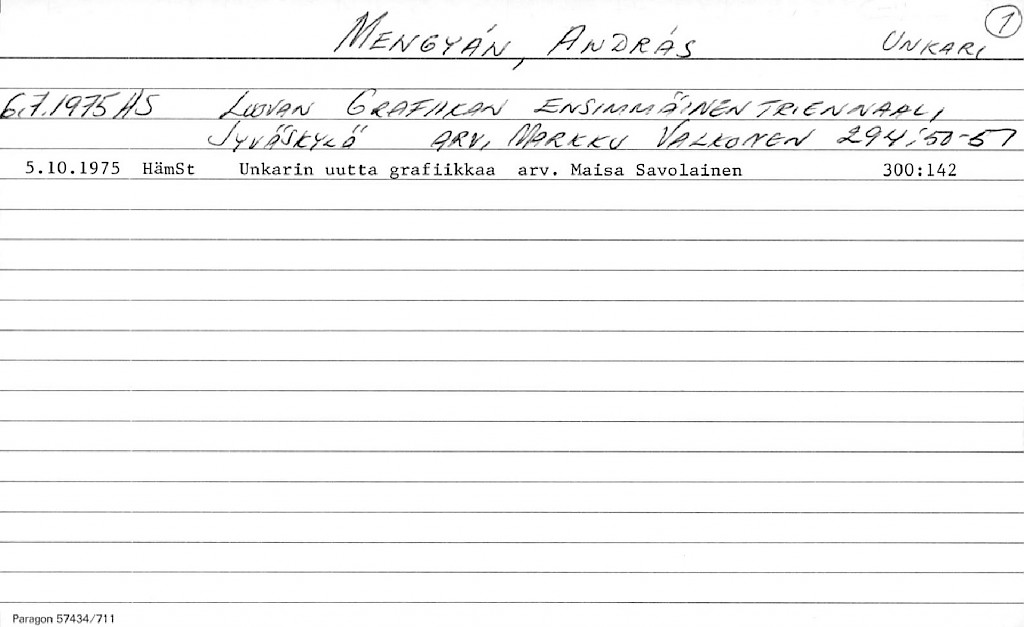 MENGYÁN, ANDRÁS UNKARI 1
6.7.1975 HS LUOVAN GRAFIIKAN ENSIMMÄINEN TRIENNAALI,
JYVÄSKYLÄ ARV. MARKKU VALKONEN 294:50-51
5.10.1975 HämSt Unkarin uutta grafiikkaa arv. Maisa Savolainen 300:142
Paragon 57434/711